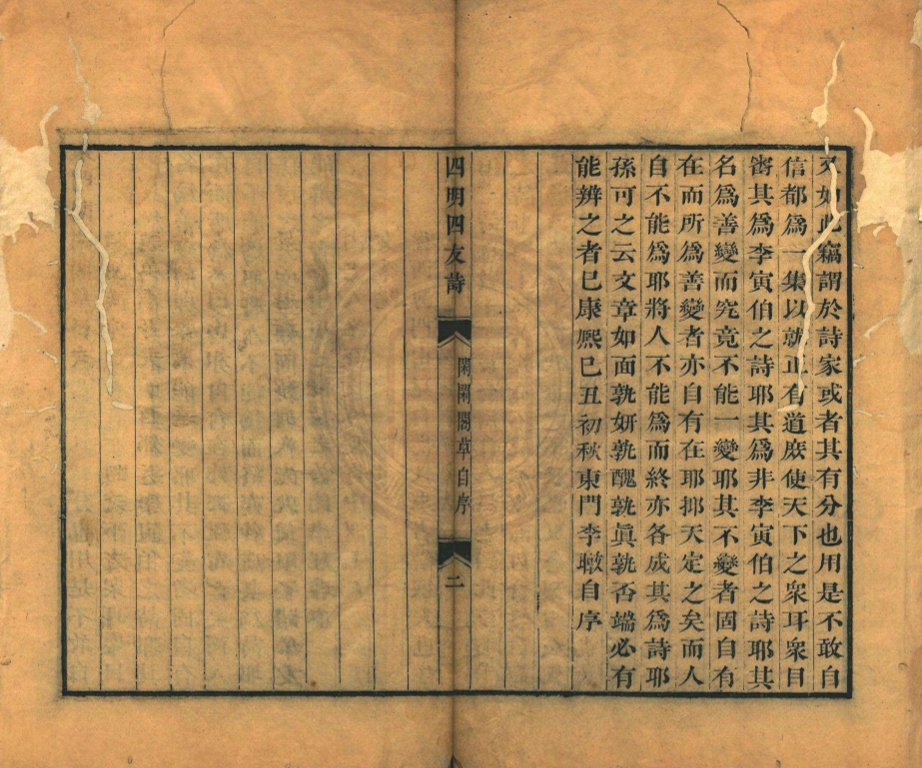 又如此竊謂於詩家或者其有分也用是不敢自
信都爲一集以就正有道庻使天下之衆耳衆目
審其爲李寅伯之詩耶其爲非李寅伯之詩耶其
名爲善變而究竟不能一變耶其不變者固自有
在而所爲善變者亦自有在耶抑天定之矣而人
自不能爲耶將人不能爲而終亦各成其爲詩耶
孫可之云文章如面孰妍孰醜孰眞孰否端必有
能辨之者巳康熈巳丑初秋東門李暾自序
四明四友詩
閑閑閣草自序
二